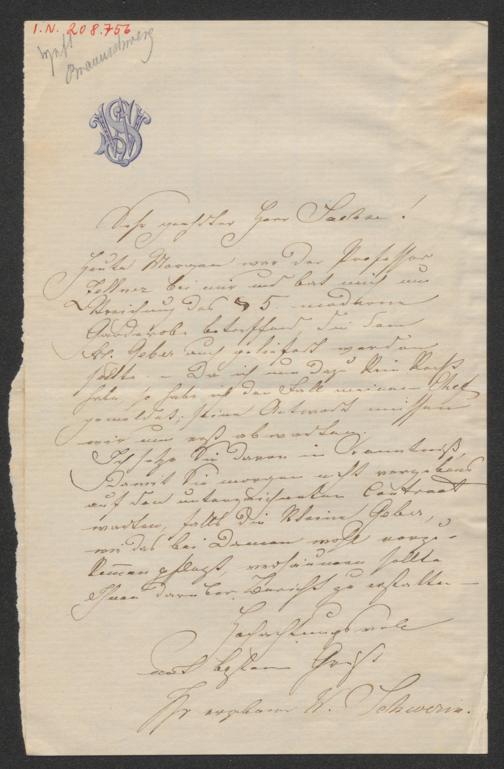 I. N. 208.756
Braunschweig
Sehr geehrter Herr Sachse!
Heute Morgen war der Professor
Zellner bei mir und bat mich um
Streichung des § 5 moderne
Garderobe betreffend, die dem
Frl. Geber auch geliefert werden
sollte – Da ich nun dazu kein Recht
habe, so habe ich den Fall meinem Chef
gemeldet, seine Antwort müssen
wir nun erst abwarten.
Ich setze Sie davon in Kenntniß,
damit Sie morgen nicht vergebens
auf den unterzeichneten Contract
warten, falls die kleine Geber,
wie das bei Damen wohl vorzu-
kommen pflegt, versäumen sollte
Ihnen darüber Bericht zu erstatten –
Hochachtungsvoll
mit bestem Gruß
Ihr ergebener Schwerin.